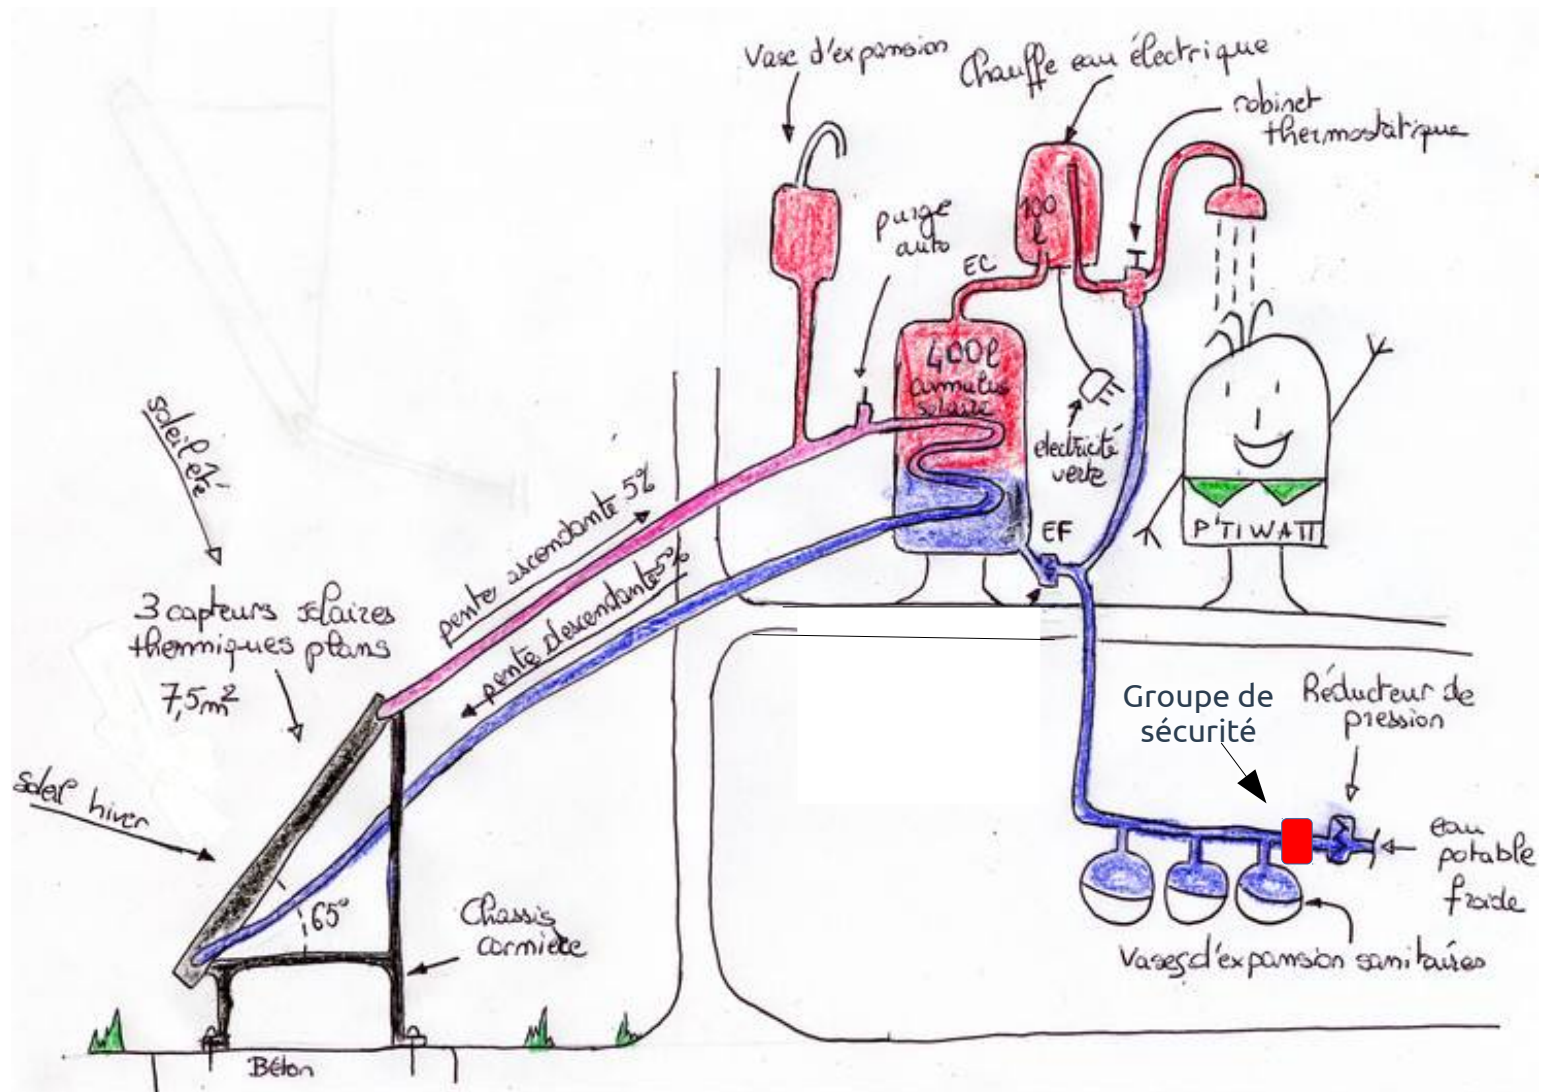 Vase d'expansion
Chauffe eau électrique
robinet
thermostatique
purge
auto
100
l
EC
400l
cumulus
solaire
électricité
verte
EF
P'TIWATT
soleil été
pente ascendante 5%
pente descendante 5%
3 capteurs solaires
thermiques plans
7,5m²
soleil hiver
65°
Chassis
cornière
Béton
Groupe de
sécurité
Réducteur de
pression
eau
potable
froide
Vases d'expansion sanitaires